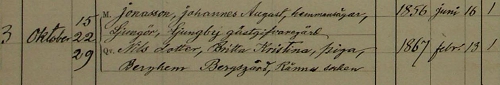 15 M. Jonasson, Johannes August, hemmansägar, 1856 juni 16 1
3 Oktober 22 Ljungby gästgifvaregård
29 Qv. Nils Dotter, Britta Kristina, piga, 1867 febr. 13 1
Berghem Bergsgård, Känna socken